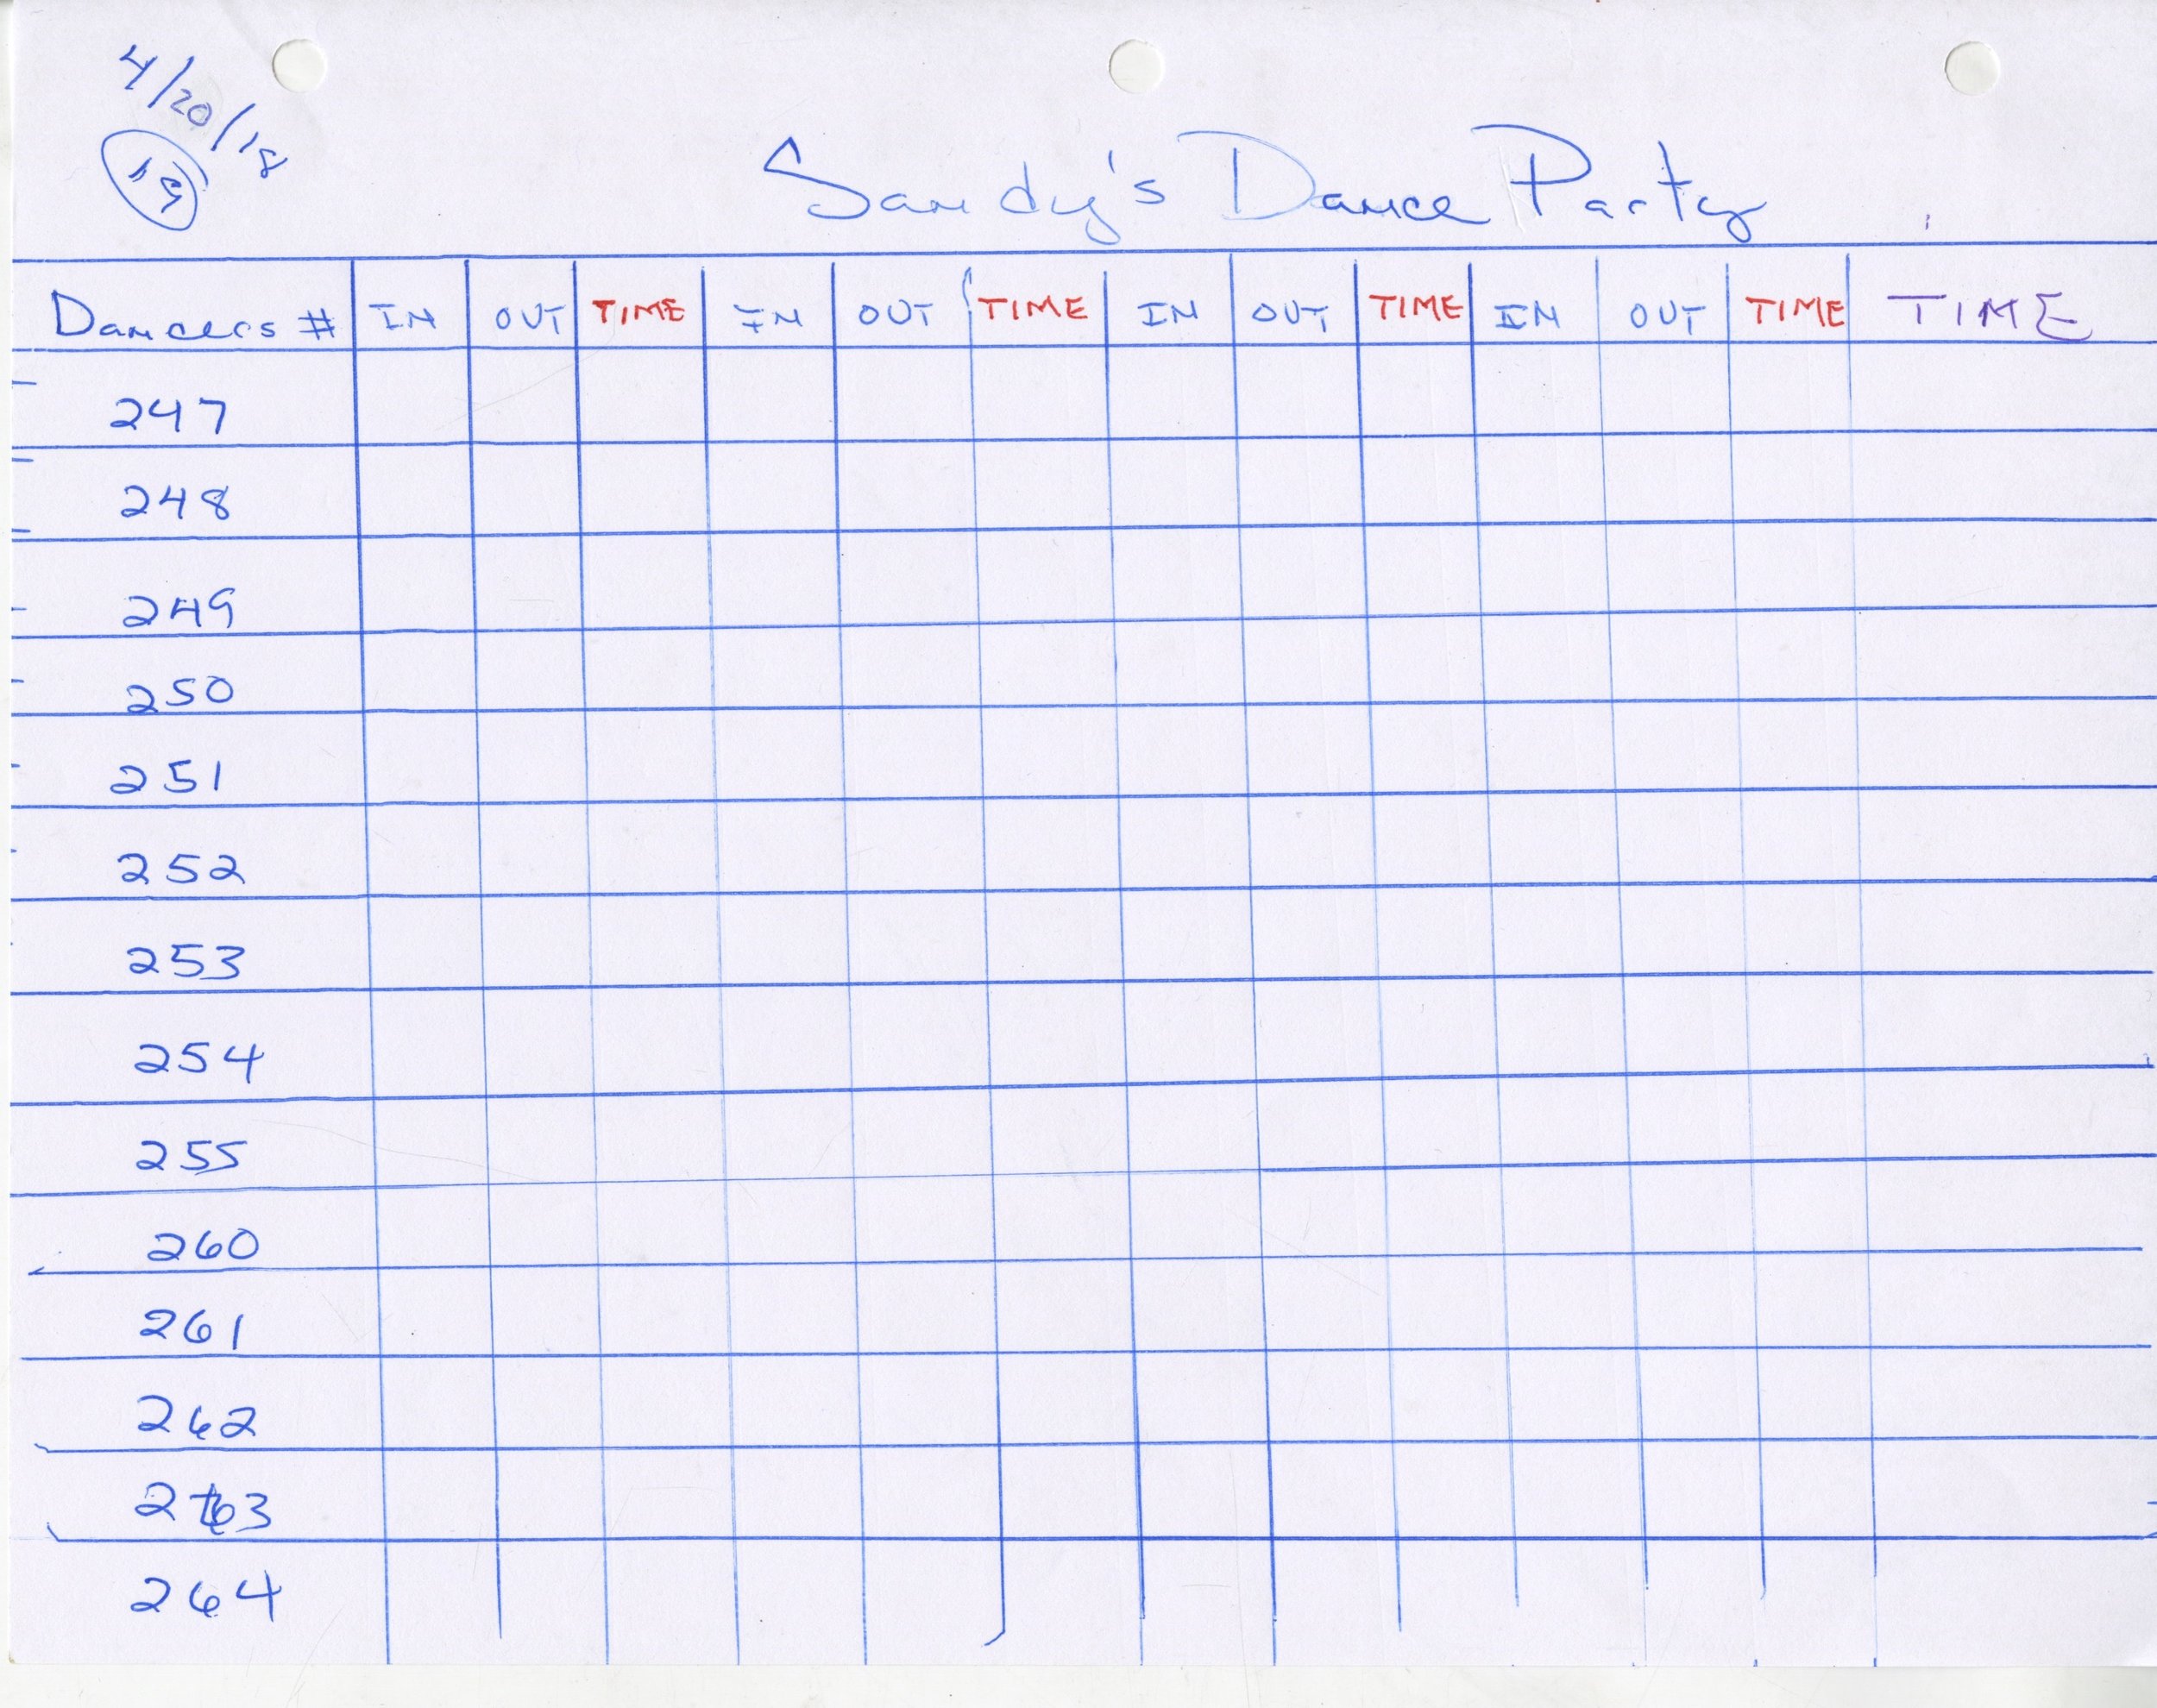 4/20/18
19
Sandy's Dance Party
Dancers # IN OUT TIME IN OUT TIME IN OUT TIME IN OUT TIME TIME
247
248
249
250
251
252
253
254
255
260
261
262
263
264